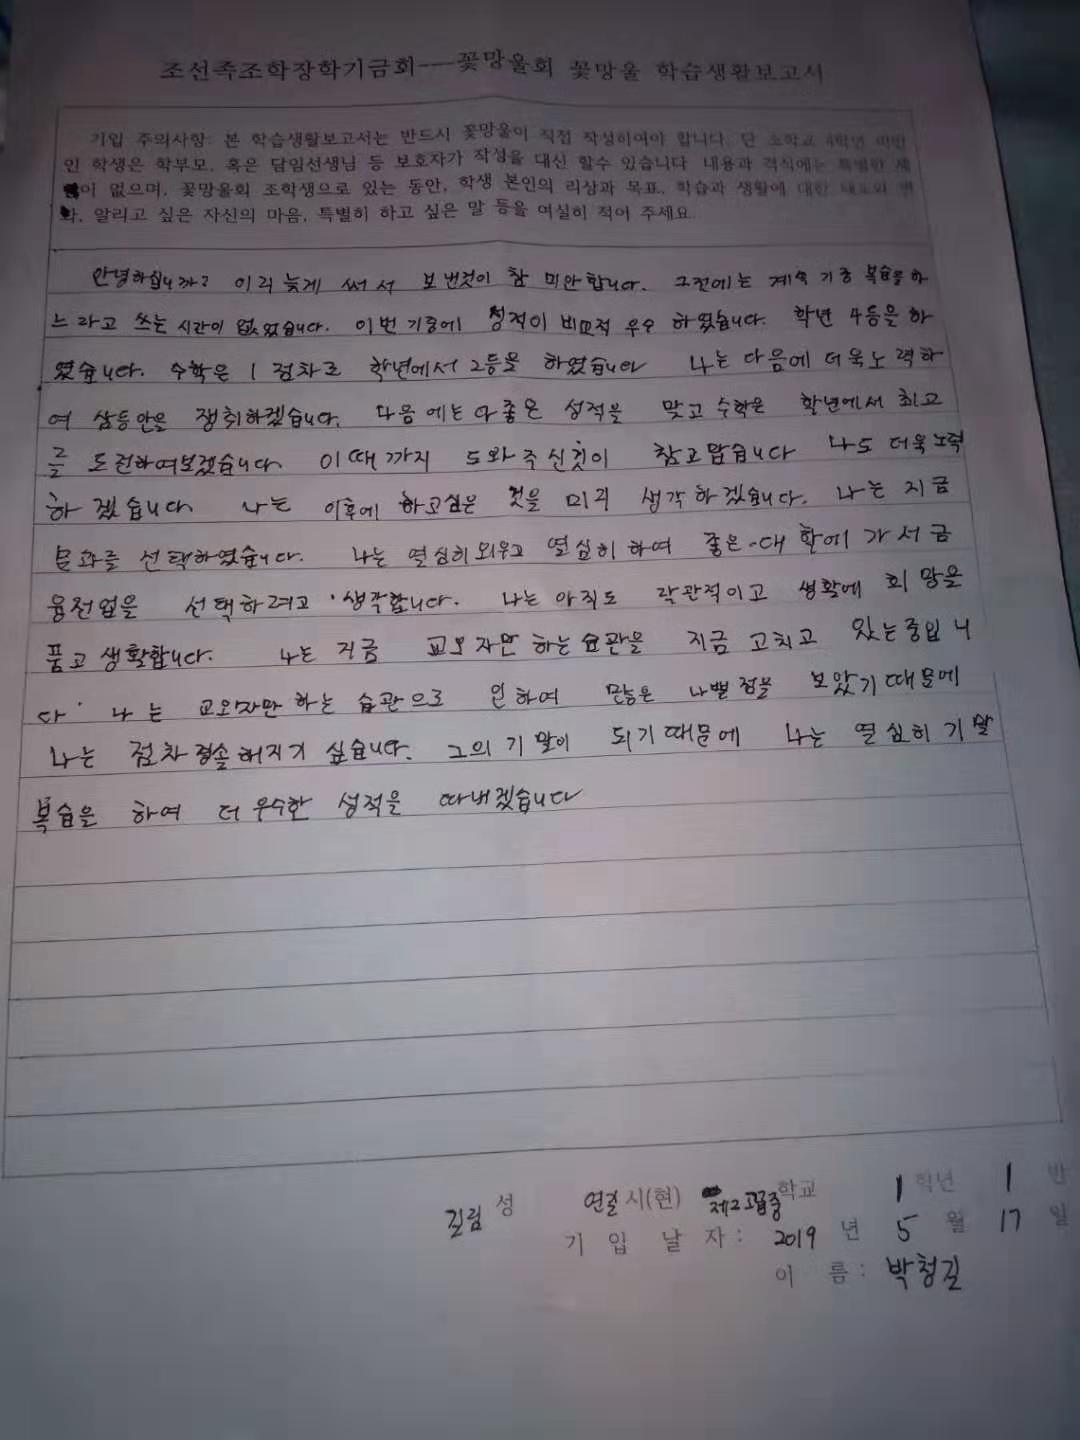 조선족조학장학기금회──꽃망울회 꽃망울 학습생활보고서
기입 주의사항: 본 학습생활보고서는 반드시 꽃망울이 직접 작성하여야 합니다. 단 소학교 4학년 미만
인 학생은 학부모, 혹은 담임선생님 등 보호자가 작성을 대신 할수 있습니다. 내용과 격식에는 특별한 제
이 없으며, 꽃망울회 조학생으로 있는 동안, 학생 본인의 리상과 목표, 학습과 생활에 대한 태도와 변
화, 알리고 싶은 자신의 마음, 특별히 하고 싶은 말 등을 여실히 적어 주세요.
안녕하십니까? 이리 늦게 써서 보낸것이 참 미안합니다. 그전에는 계속 기중 복습을 하
느라고 쓰는 시간이 없었습니다. 이번 기중에 성적이 비교적 우수 하였습니다. 학년 4등을 하
였습니다. 수학은 1점차로 학년에서 2등을 하였습니다 나는 다음에 더욱 노력하
여 삼등안을 쟁취하겠습니다. 다음에는 더 좋은 성적을 맞고 수학은 학년에서 최고
를 도전하여보겠습니다. 이때까지 도와주신것이 참 고맙습니다 나도 더욱 노력
하겠습니다. 나는 이후에 하고싶은 것을 미리 생각하겠습니다. 나는 지금
문과를 선택하였습니다. 나는 열심히 외우고 열심히 하여 좋은 대학에 가서 금
융전업을 선택하려고 생각합니다. 나는 아직도 락관적이고 생활에 희망을
품고 생활합니다. 나는 지금 교오자만 하는 습관을 지금 고치고 있는중입니
다. 나는 교오자만 하는 습관으로 인하여 많은 나쁜 점을 보았기 때문에
나는 점차 겸손해지기 싶습니다. 그의 기말이 되기때문에 나는 열심히 기말
복습을 하여 더 우수한 성적을 따내겠습니다
길림 성 연길 시(현) 제2고급중 학교 1 학년 1 반
기 입 날 자: 2019 년 5 월 17 일
이 름: 박청길